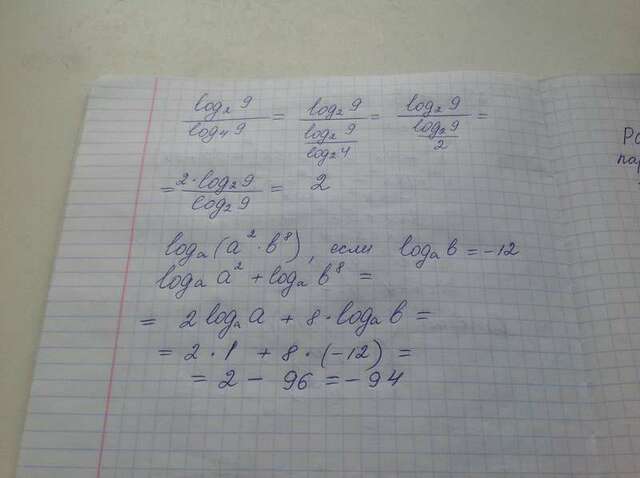 log₂ 9 / log₄ 9 = log₂ 9 / (log₂ 9 / log₂ 4) = log₂ 9 / (log₂ 9 / 2) =
= 2·log₂ 9 / log₂ 9 = 2
logₐ(a²·b⁸), если logₐ b = -12
logₐ a² + logₐ b⁸ =
= 2 logₐ a + 8·logₐ b =
= 2·1 + 8·(-12) =
= 2 - 96 = -94